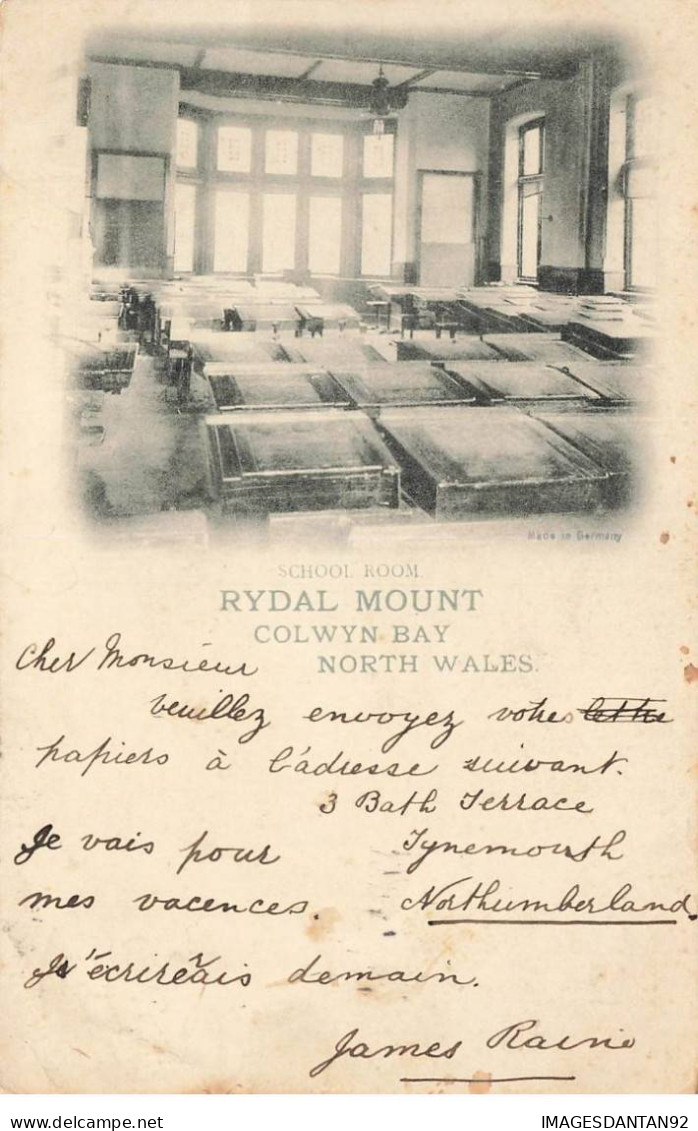 Made in Germany
SCHOOL ROOM
RYDAL MOUNT
COLWYN BAY
NORTH WALES.
Cher Monsieur
veuillez envoyez votres lettre
papiers à l'adresse suivant.
3 Bath Terrace
Tynemouth
Northumberland.
Je vais pour
mes vacences.
J'écrirérais demain.
James
IMAGESDANTAN92